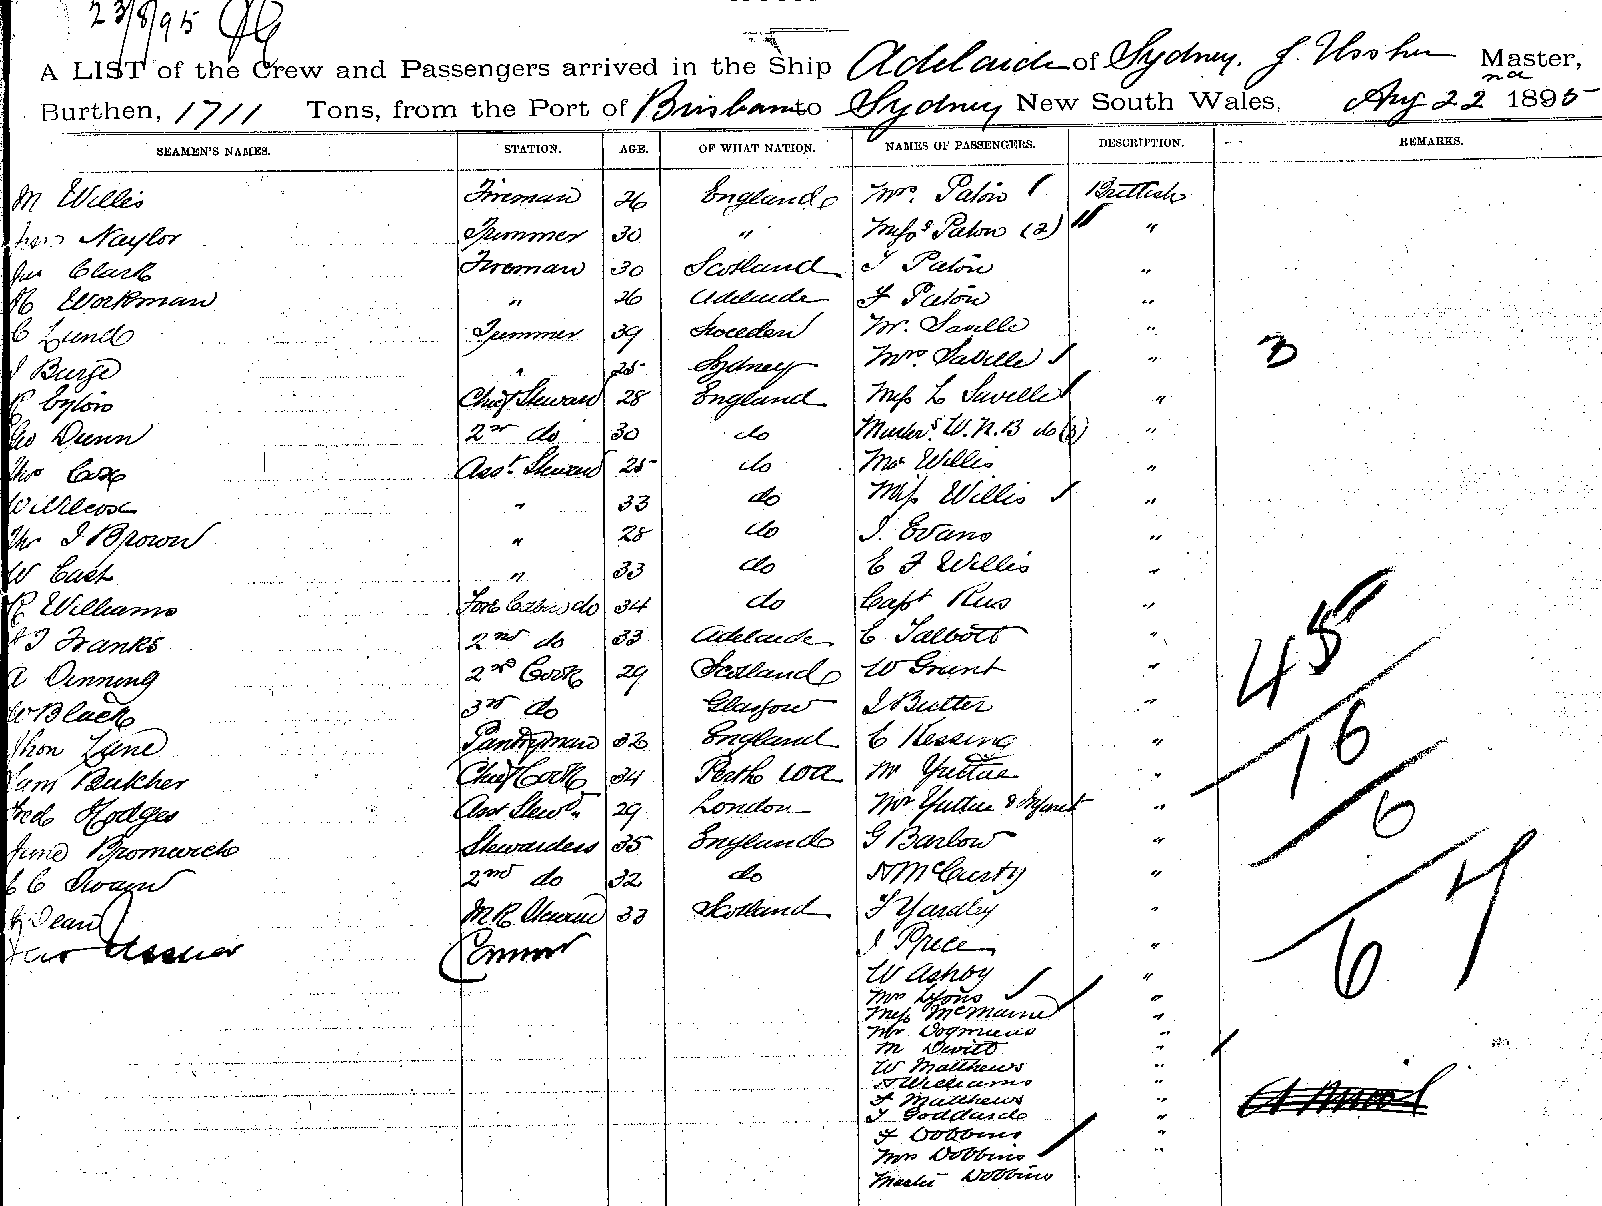 23/8/95
A LIST of the Crew and Passengers arrived in the Ship Adelaide of Sydney. J. Ussher Master,
Burthen, 1711 Tons, from the Port of Brisbane to Sydney New South Wales, Aug 22nd 1895
SEAMEN'S NAMES. STATION. AGE. OF WHAT NATION. NAMES OF PASSENGERS. DESCRIPTION. REMARKS.
M Willis Fireman 26 England Mrs. Paton Brittish
Naylor Trimmer 30 " Misss Paton (2) "
Jas Clark Fireman 30 Scotland J Paton "
R Workman " 26 Adelaide F Paton "
C Lund Trimmer 39 Sweeden Mr. Saville "
J Burge " 25 Sydney Mrs Saville " 3
Chief Steward 28 England Miss L Saville "
Geo Dunn 2nd do 30 do Masters W.N.B do (3) "
Thos Cox Asst. Steward 25 do Mr Willis "
Willcox " 33 do Miss Willis "
Thos J Brown " 28 do J. Evans "
W East " 33 do E J Willis "
R Williams Fore Cabin do 34 do Capt "
J Franks 2nd do 33 Adelaide C Talbott "
A Denning 2nd Cook 29 Scotland W Grant "
W Black 3rd do Glasgow J Butter "
Thos Lane Pantryman 32 England C Kessing "
Sam Butcher Chief Cook 34 Perth WA Mr Yuttie "
Fred Hodges Asst Stewd. 29 London Mrs Yuttie & Infant "
Jane Bromwich Stewardess 35 England G Barlow "
E C Swain 2nd do 32 do H McCursty "
Dean M R Steward 33 Scotland F Yardley "
Ussher J Price "
W Ashby "
Mrs Lyons "
Miss McMarine "
Mr "
M Devitt "
W Matthews "
H Williams "
F Matthews "
J Goddarde "
F Dobbins "
Mrs Dobbins "
Master Dobbins
45
16
6
67